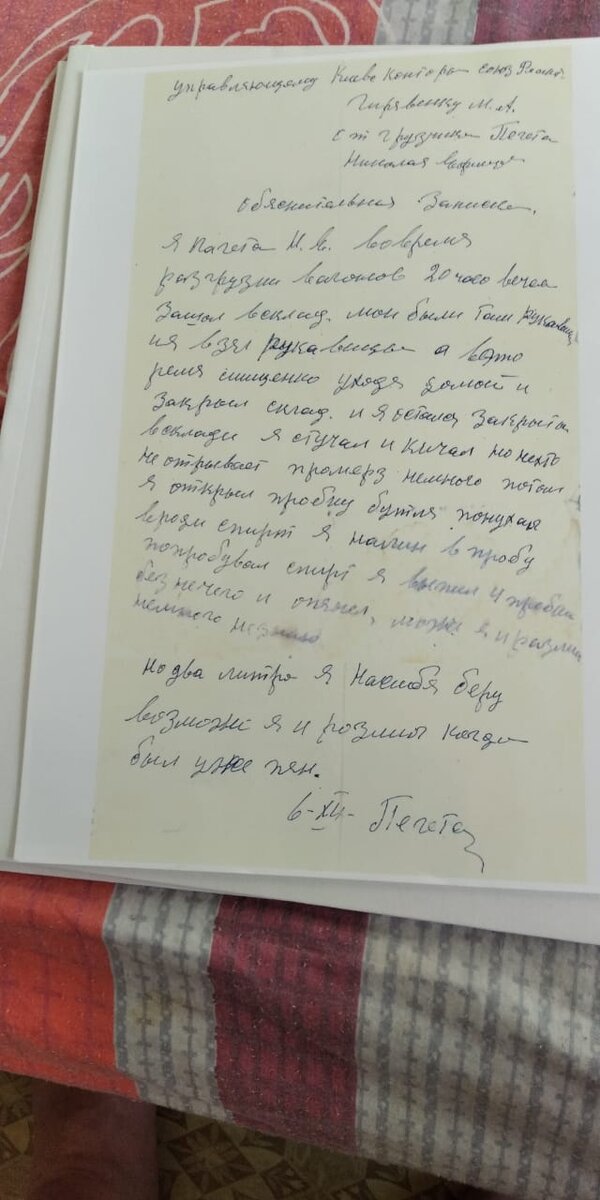 управляющому Киевс Конторы союз
Гирявенку М. А.
с т грузчика Пегета
Николая
обяснительная Записка.
я Пагета Н. В. вовремя
разгрузки вагонов 20 часо вечеа
Зашол всклад. мои были там рукавиц
и я взял рукавицы а вэто
ремя снищенко уходя домой и
Закрыл склад. и я остался Закрытом
вскладе я стучал и кичал но некто
не отрывает промерз немного потом
я открыл пробку бутля понухал
вроди спирт я налил в пробу
попробувал спирт я выпил 4 пробки
без нечего и опянел, може я и разлил
немного незнаю
но два литра я насибя беру
возможе я и розлил когда
был уже пян.
6-XII- Пегета